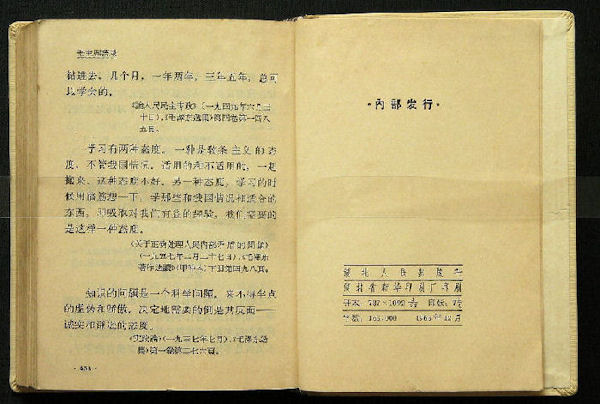 毛主席语录
钻进去，几个月，一年两年，三年五年，总可
以学会的。
《论人民民主专政》（一九四九年六月三
十日），《毛泽东选集》第四卷第一四八
五页。
学习有两种态度。一种是教条主义的态
度，不管我国情况，适用的和不适用的，一起
搬来。这种态度不好。另一种态度，学习的时
候用脑筋想一下，学那些和我国情况相适合的
东西，即吸取对我们有益的经验，我们需要的
是这样一种态度。
《关于正确处理人民内部矛盾的问题》
（一九五七年二月二十七日），《毛泽东
著作选读》（甲种本）下册第四九八页。
知识的问题是一个科学问题，来不得半点
的虚伪和骄傲，决定地需要的倒是其反面——
诚实和谦逊的态度。
《实践论》（一九三七年七月），《毛泽东选
集》第一卷第二七六页。
·内部发行·
湖北人民出版社
湖北省新华印刷厂印刷
开本：787×1092
1965年12月